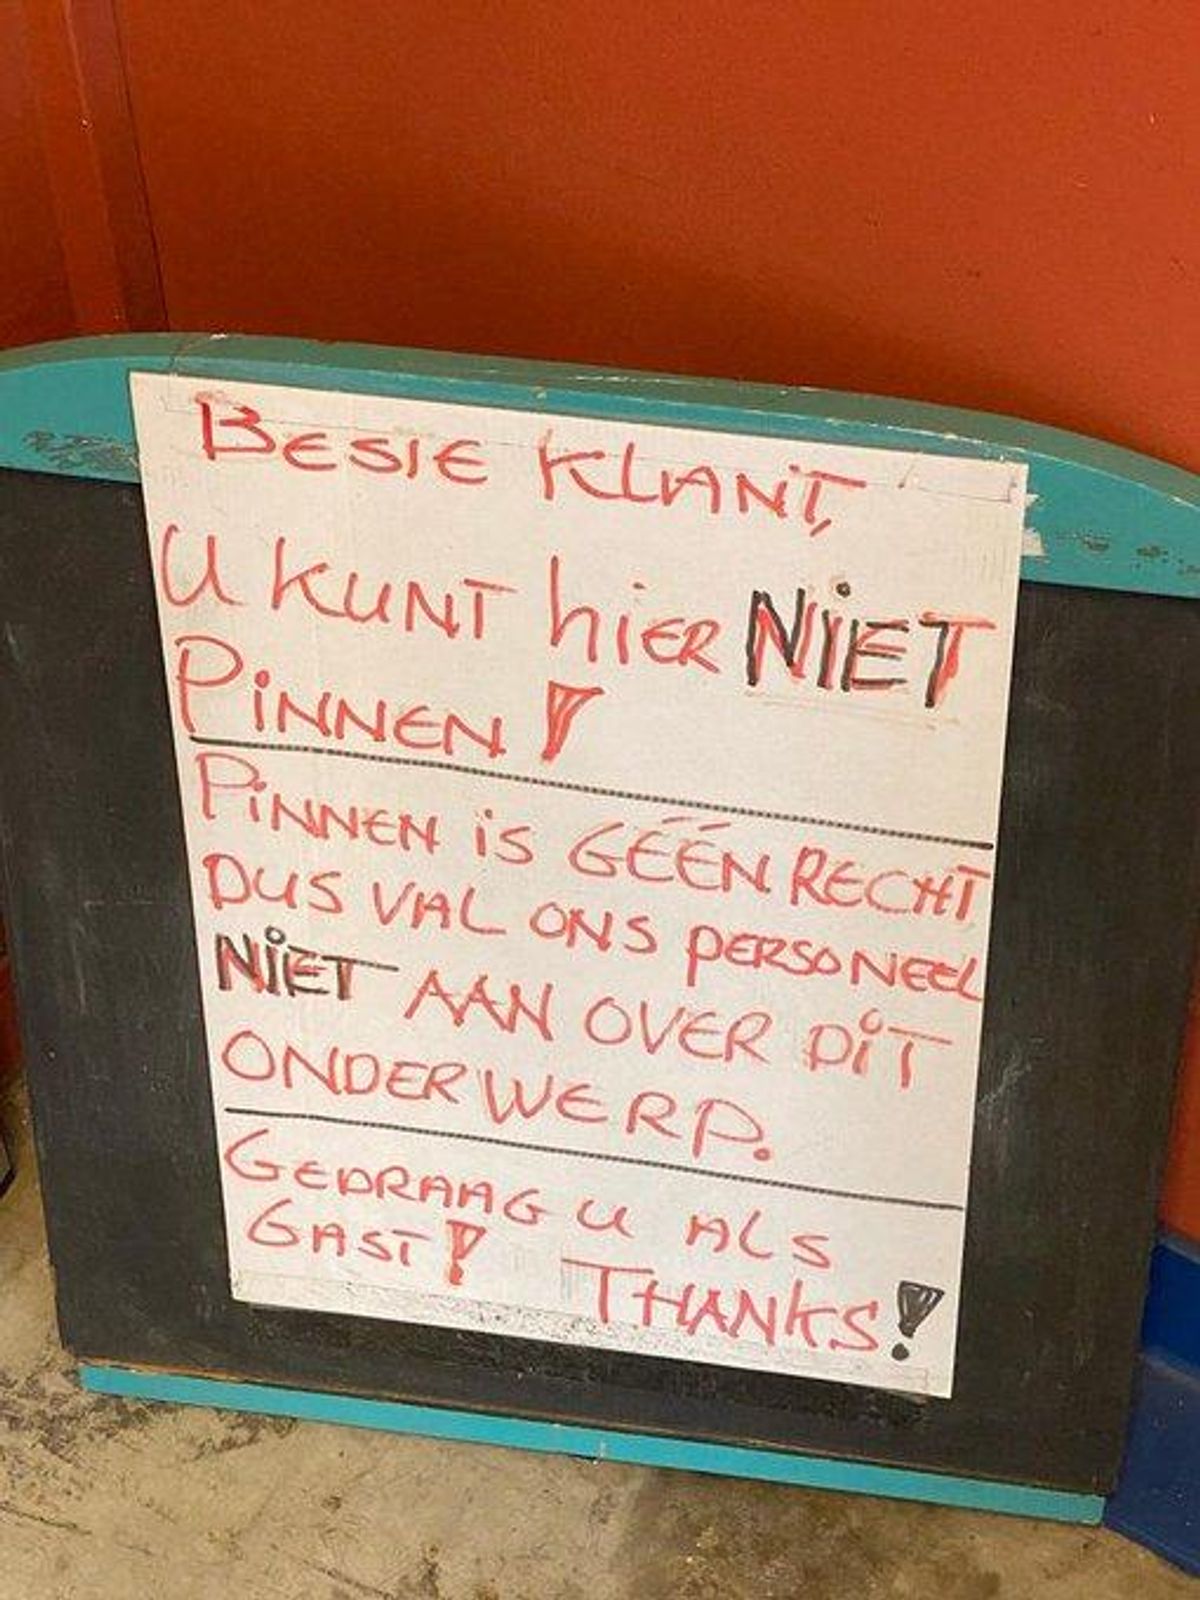 BESTE KLANT,
U KUNT hiER NIET
PiNNEN!
PiNNEN iS GÉÉN RECHT
DUS VAL ONS PERSONEEL
NiET AAN OVER DiT
ONDERWERP.
GEDRAAG U ALS
GAST!
THANKS!